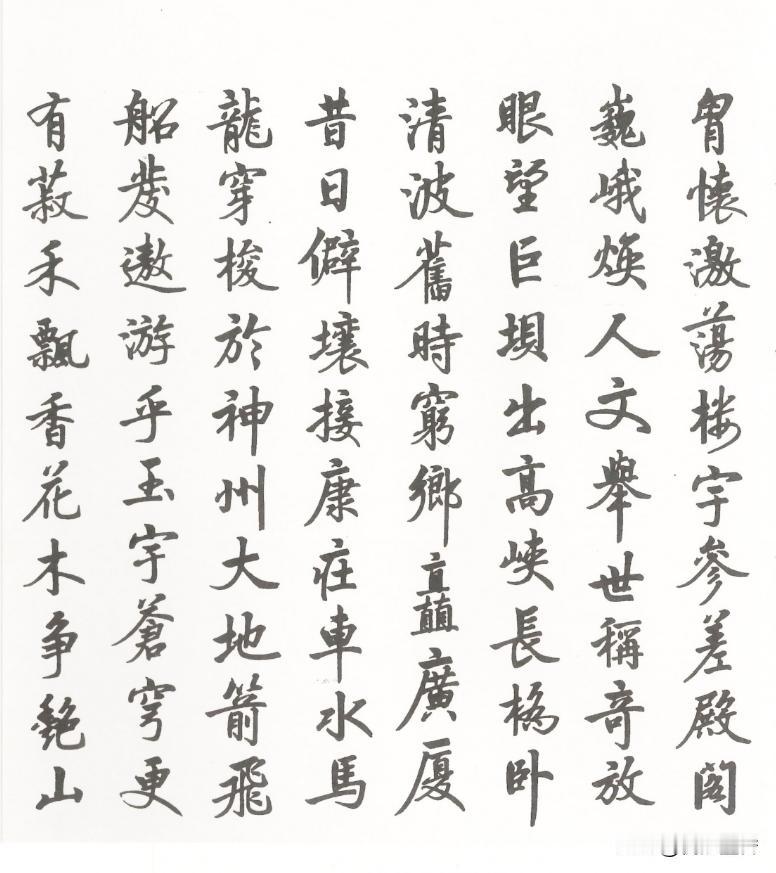 胷懷激蕩楼宇參差殿閣
巍峨焕人文舉世稱奇放
眼望巨垻出高峡長橋卧
清波舊時窮鄉矗廣厦
昔日僻壤接康莊車水馬
龍穿梭於神州大地箭飛
船發遨游乎玉宇蒼穹更
有菽禾飄香花木争艶山